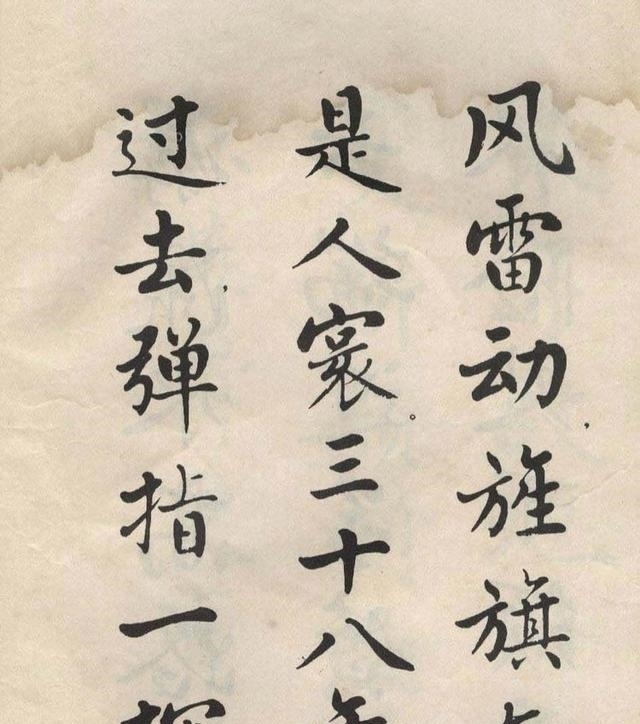 风雷动，旌旗
是人寰。三十八
过去，弹指一